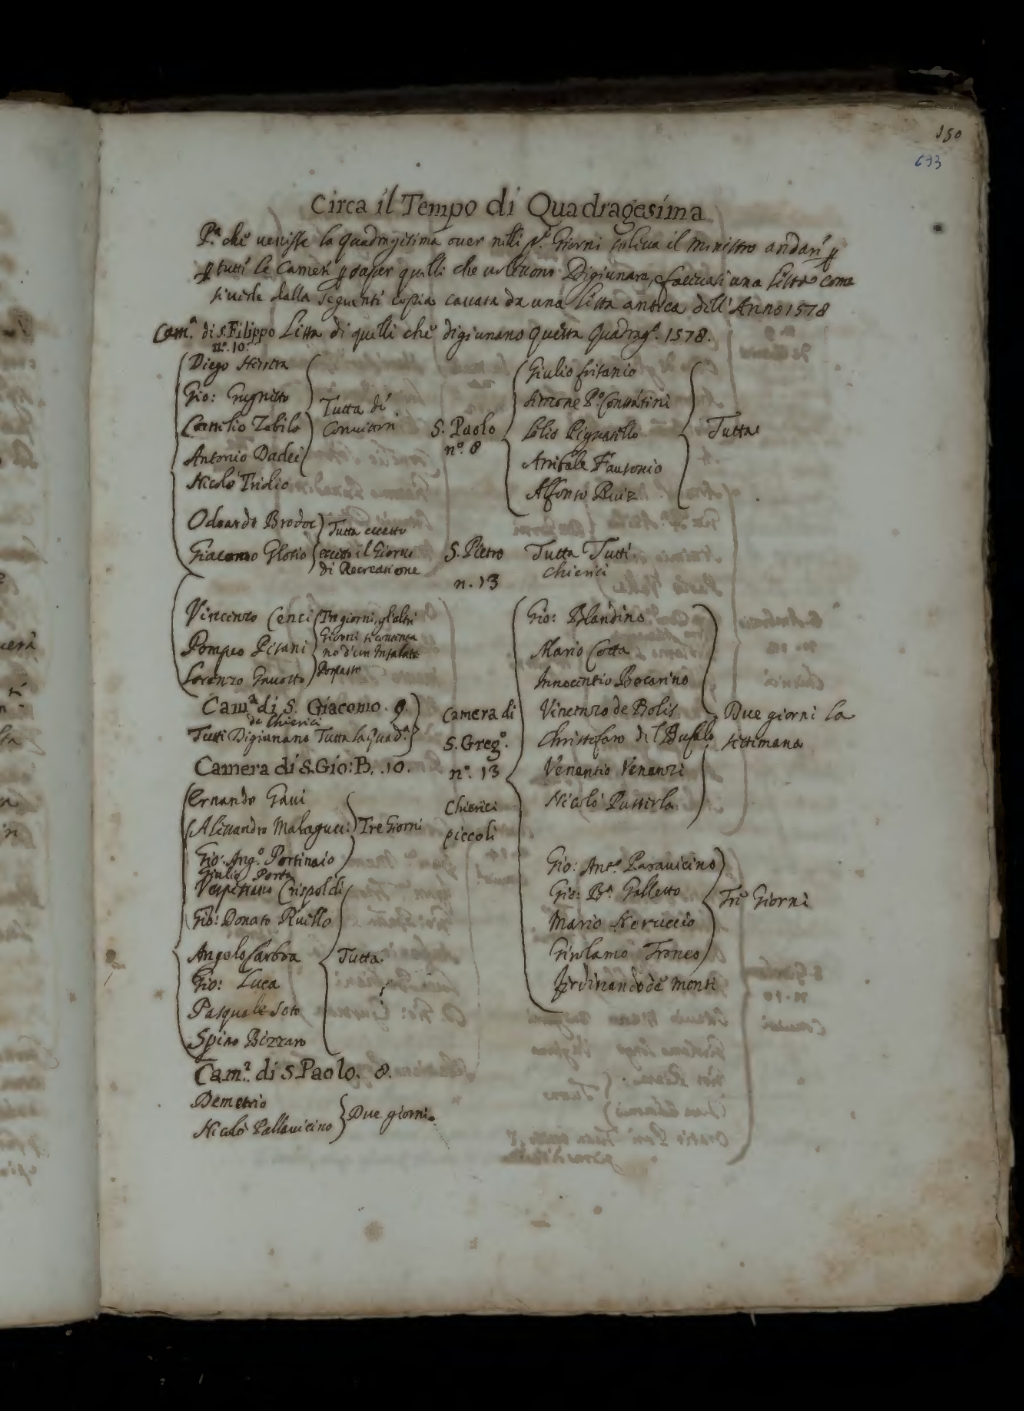 150
693
Circa il Tempo di Quadragesima
P.ª che venisse la Quadragesima over nelli p.i Giorni soleva il Ministro andar p
p tutti le Camere p saper quelli che Digiunare, e facevasi una lista come
si vede dalla seguente copia cavata da una lista antica dell'Anno 1578
Cam.ª di S. Filippo Lista di quelli che digiunano questa Quadrag.ª 1578.
n.º 10.
Diego
Gio:
Camillo
Antonio Dadei
Tutta di
Nicolò
Odoardo
Giacomo Glorio
Tutta eccetto
eccetto il Giorno
di Recreatione
Vincenzo Cenci
Pompeo Pisani
Lorenzo
Tre giorni, gl'altri
Giorni si contenta
no d'un Insalata
Cam.ª di S. Giacomo. 9
de Chierici
Tutti Digiunano Tutta la Quad.ª
Camera di S. Gio: B. .10.
Ernando Gavi
Alissandro
Gio: Ang.º Portinaio
Tre Giorni
Giulio Porta
Vespesiano Crispoldi
Gio: Donato Ruello
Angelo
Gio: Luca
Pasquale Soto
Spino Bizzaro
Tutta
Cam.ª di S. Paolo. 8.
Demetrio
Nicolò Pallavicino
Due giorni.
S. Paolo
n.º 8
Giulio
Simone
Lelio Pignatello
Annibale
Alfonso Ruiz
Tutta
S. Pietro
n. 13
Tutta Tutti
chierici
Camera di
S. Greg.º
n.º 13
Chierici
piccoli
Gio: Blandino
Mario Cotta
Innocentio Bocarino
Vincenzo de Bolis
Christofaro del Bufalo
Venantio Venanzi
Nicolò
Due giorni la
settimana
Gio: Ant.º Paravicino
Gio: B.ª Galletto
Mario
Girolamo Fronco
Tre Giorni
Ferdinando de Monti